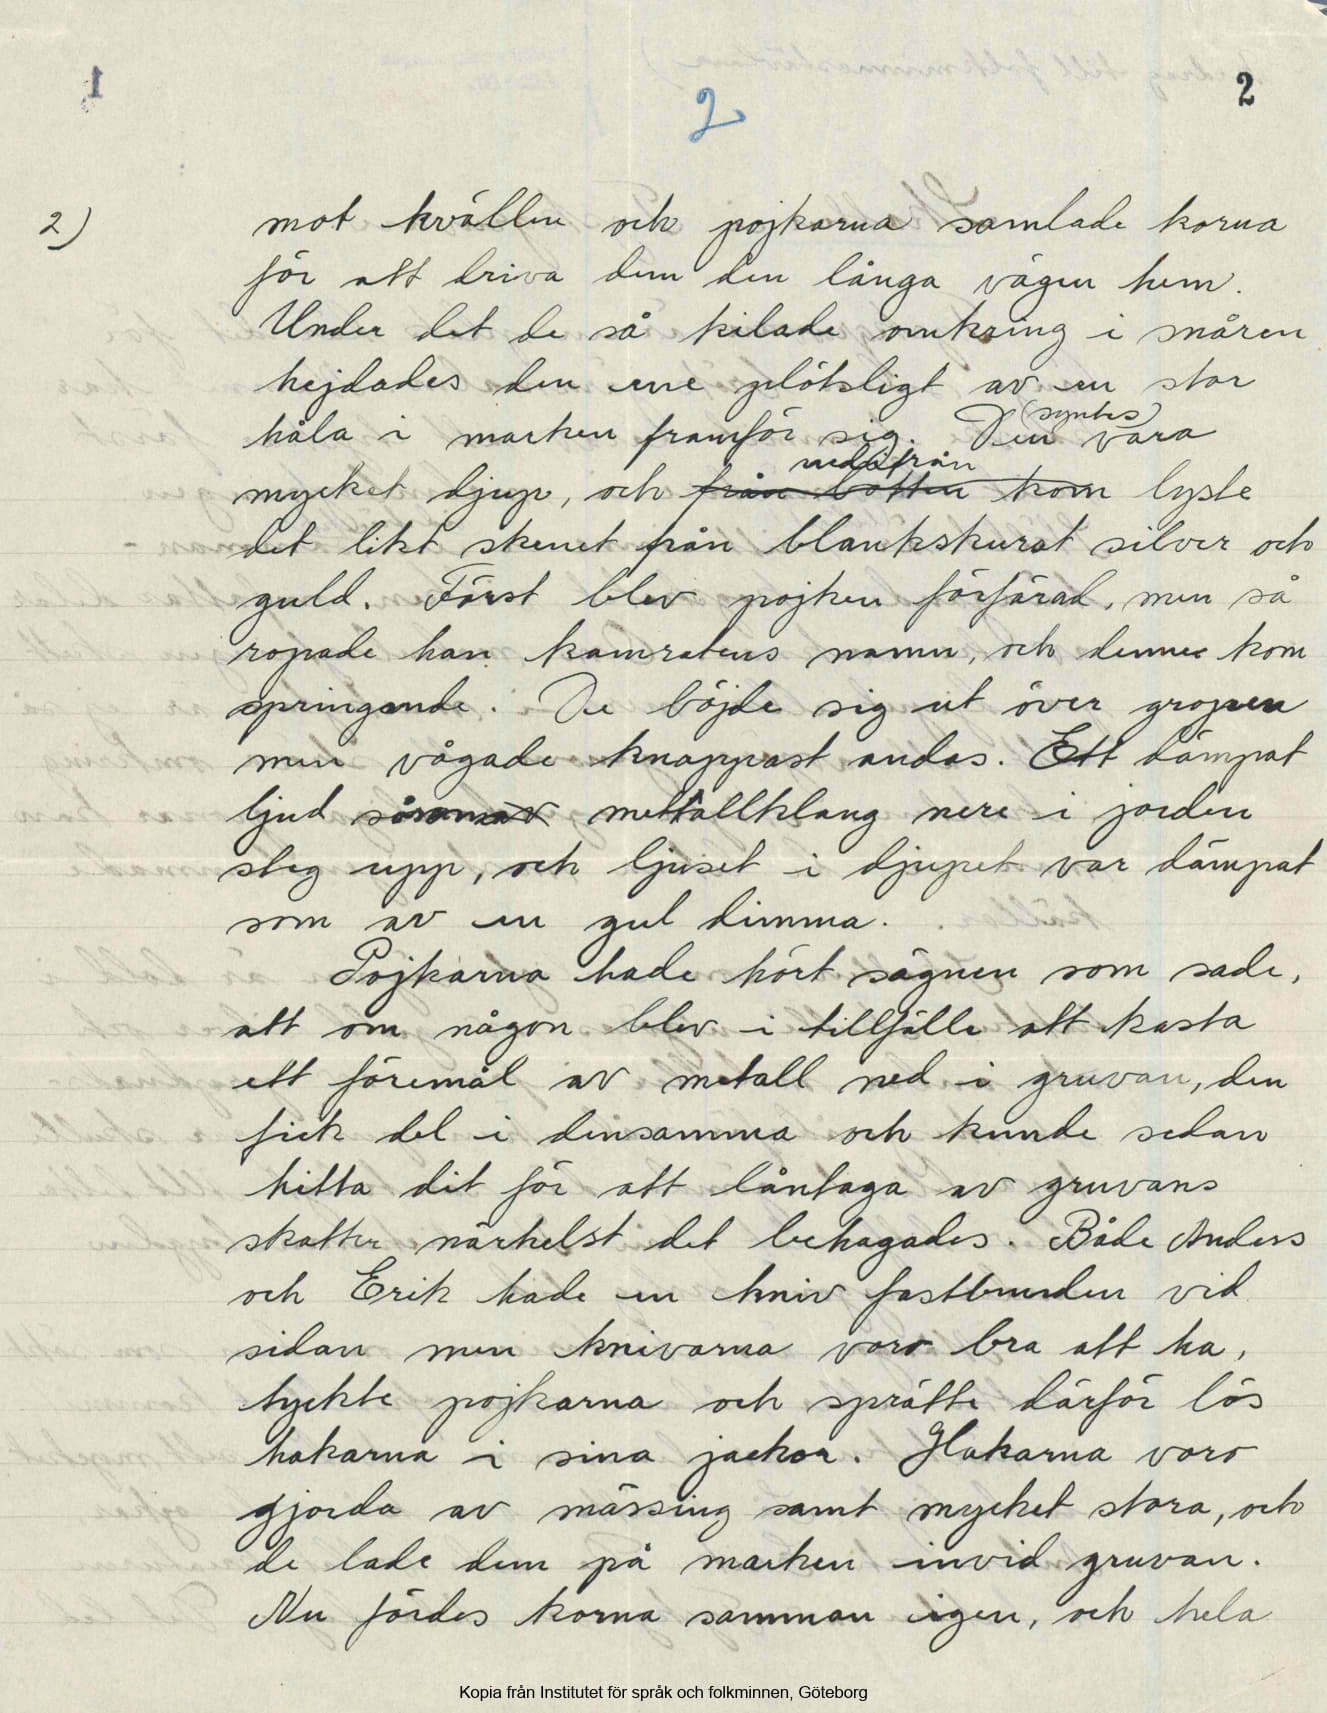 1
2
2
2)
mot kvällen och pojkarna samlade korna
för att driva dem den långa vägen hem.
Under det de så kilade omkring i snåren
hejdades den ene plötsligt av en stor
håla i marken framför sig. Den (syntes) vara
nedifrån
mycket djup, och från botten kom lyste
det likt skenet från blankskurat silver och
guld. Först blev pojken förfärad, men så
ropade han kamratens namn, och denne kom
springande. De böjde sig ut över gropen
men vågade knappast andas. Ett dämpat
ljud såsom av mettallklang nere i jorden
steg upp, och ljuset i djupet var dämpat
som av en gul dimma.
Pojkarna hade hört sägnen som sade,
att om någon blev i tillfälle att kasta
ett föremål av metall ned i gruvan, den
fick del i densamma och kunde sedan
hitta dit för att låntaga av gruvans
skatter närhelst det behagades. Både Anders
och Erik hade en kniv fastbunden vid
sidan men knivarna voro bra att ha,
tyckte pojkarna och sprätte därför lös
hakarna i sina jackor. Hakarna voro
gjorda av mässing samt mycket stora, och
de lade dem på marken invid gruvan.
Nu fördes korna samman igen, och hela
Kopia från Institutet för språk och folkminnen, Göteborg